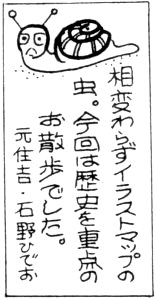 相変わらずイラストマップの
虫。今回は歴史を重点の
お散歩でした。
元住吉・石野ひでお